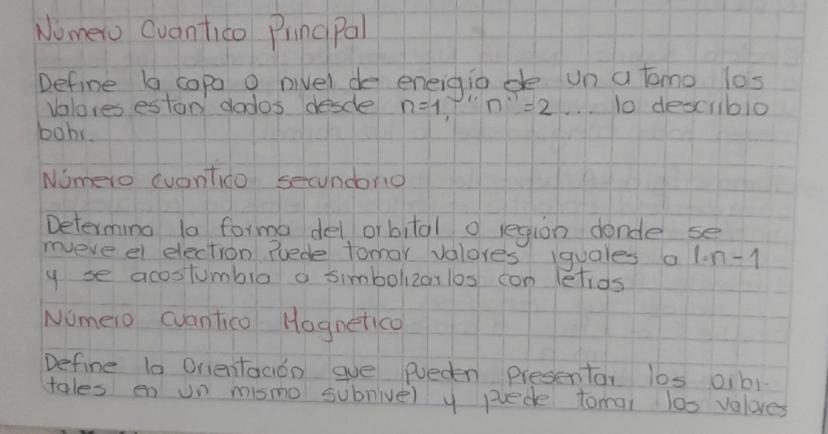 Número Cuantico Principal
Define la capa o nivel de energia de un atomo los
valores estan dados desde n=1, "n"=2... lo describio
bohr.
Número cuantico secundario
Determina la forma del orbital o región donde se
mueve el electron Puede tomar valores iguales a l:n-1
y se acostumbra a simbolizarlos con letras
Número cuantico Magnetico
Define la Orientación que pueden Presentar los orbi-
tales en un mismo subnivel y puede tomar los valores